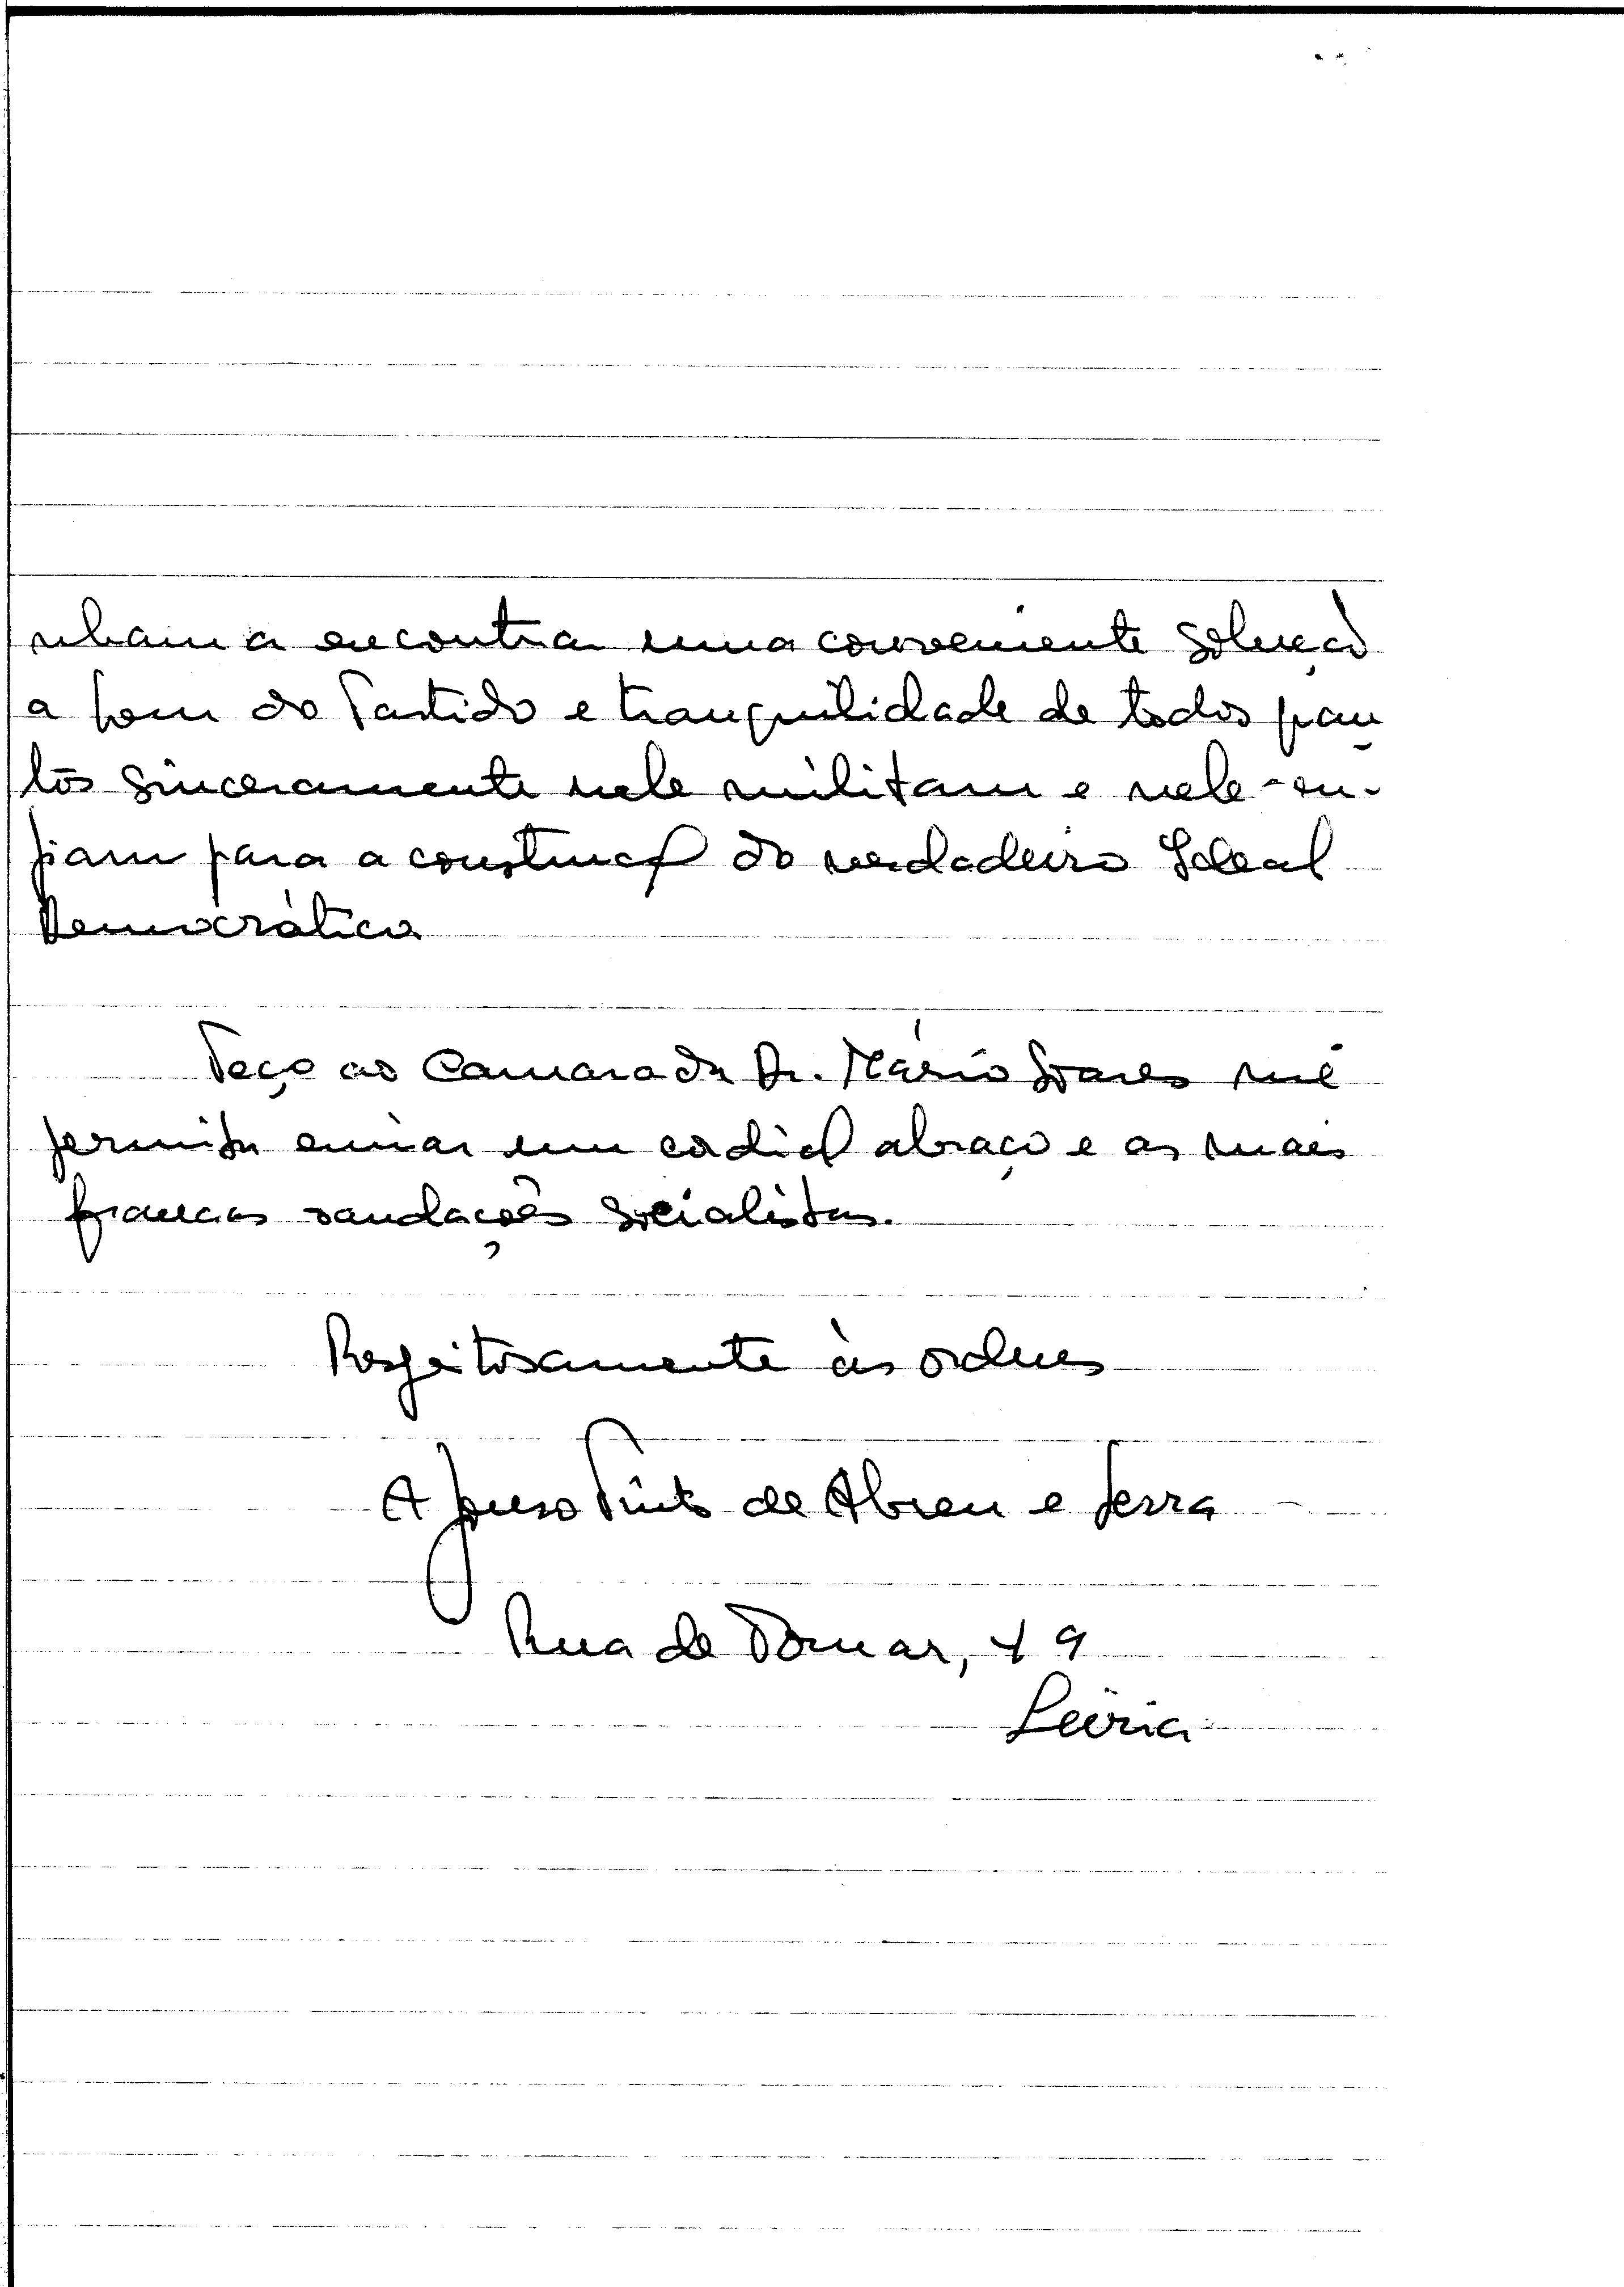 nham a encontrar uma conveniente solução
a bem do Partido e tranquilidade de todos quan
tos sinceramente nele militam e nele
fiam para a construção do verdadeiro Ideal
Democrático
Peço ao Camarada Dr. Mário Soares me
permita enviar um cordial abraço e as mais
francas saudações socialistas.
Respeitosamente às ordens
Afonso Pinto de Abreu e Serra
Rua de Tomar, 19
Leiria